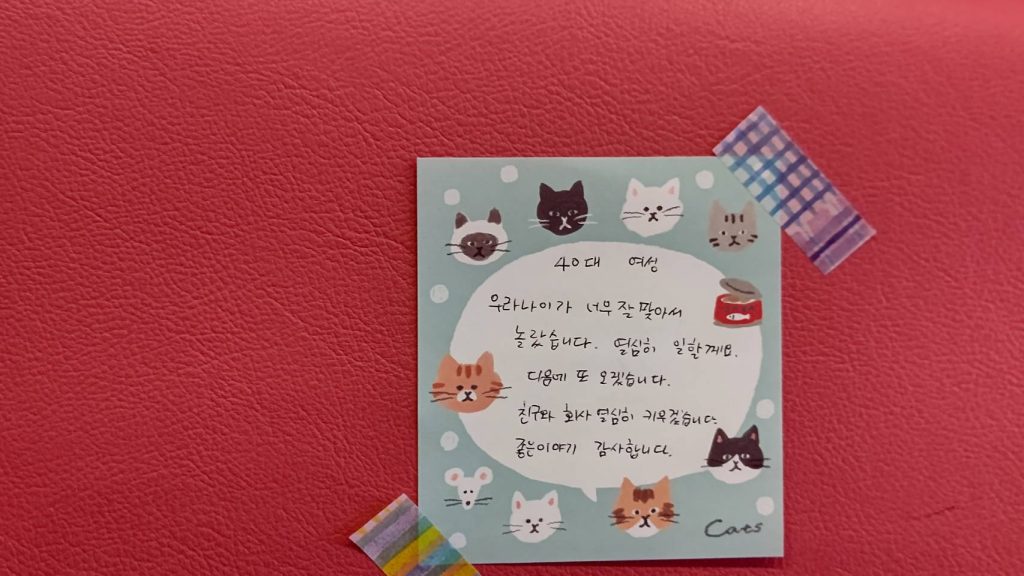 40대 여성
우라나이가 너무 잘 맞아서
놀랐습니다. 열심히 일할께요.
다음에 또 오겠습니다.
친구와 회사 열심히 키우겠습니다
좋은이야기 감사합니다.
Cats